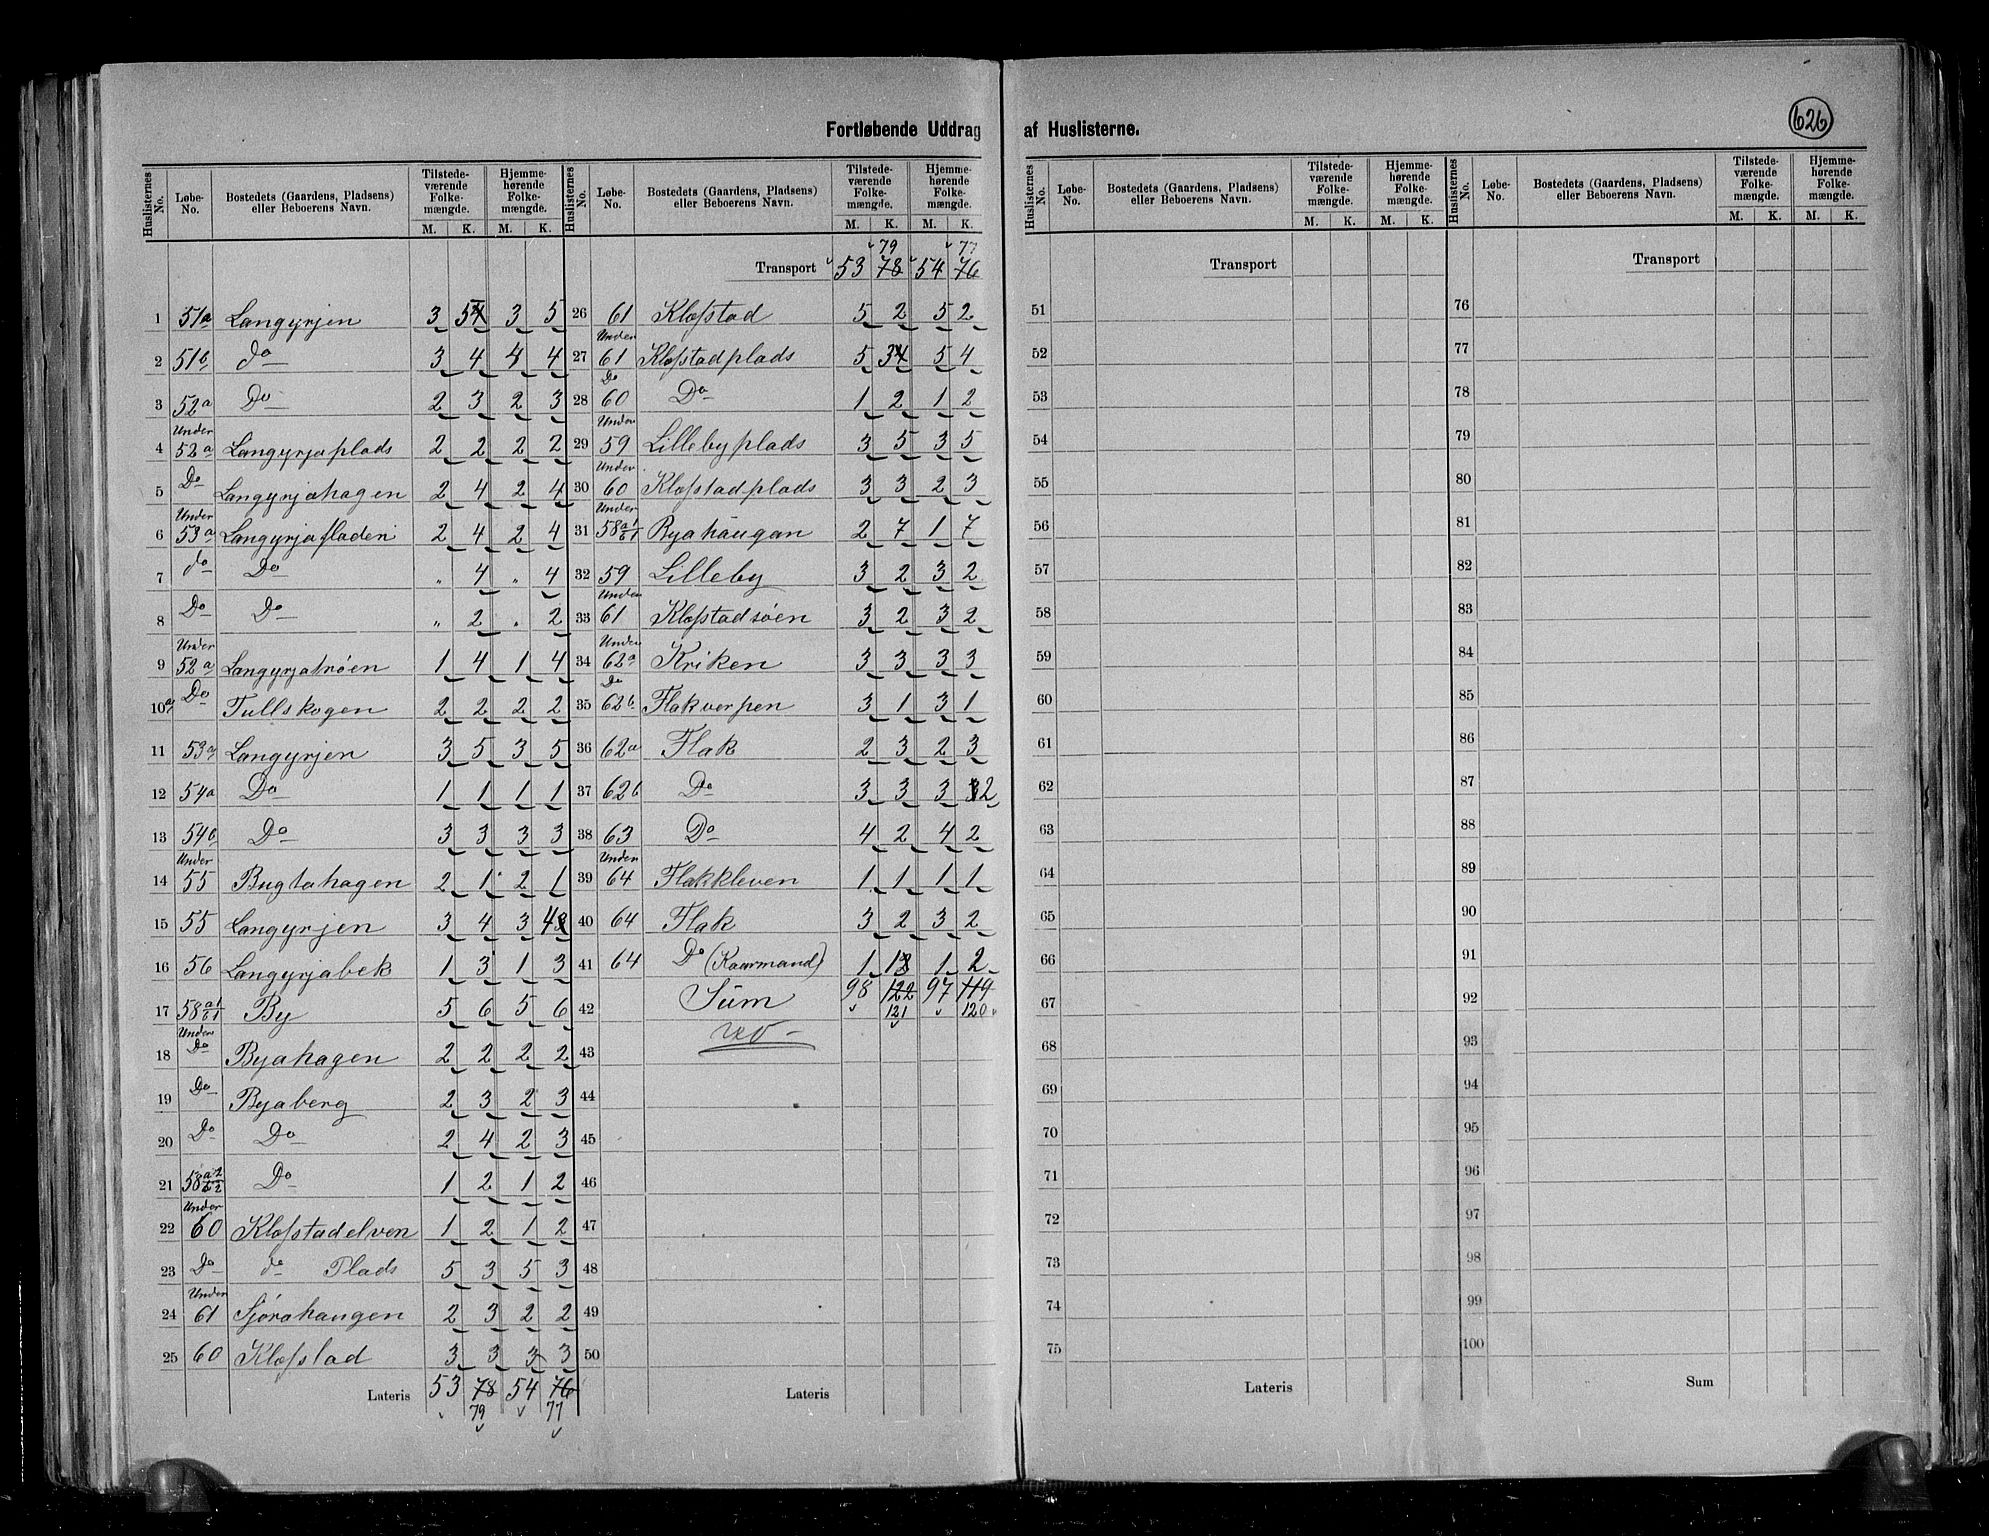 626
Fortløbende Uddrag af Huslisterne.
Huslisternes No. | Løbe-No. | Bostedets (Gaardens, Pladsens) eller Beboerens Navn. | Tilstedeværende Folkemængde. M. K. | Hjemmehørende Folkemængde. M. K.
1 51a Langyrjen 3 5 3 5
2 51b do 3 4 4 4
3 52a Do 2 3 2 3
4 Under 52a Langyrjaplads 2 2 2 2
5 Do Langyrjahagen 2 4 2 4
6 Under 53a Langyrjafladen 2 4 2 4
7 do Do " 4 " 4
8 Do Do " 2 " 2
9 Under 52a Langyrjatrøen 1 4 1 4
10 Do Tullskogen 2 2 2 2
11 53a Langyrjen 3 5 3 5
12 54a Do 1 1 1 1
13 54b Do 3 3 3 3
14 Under 55 Bugtahagen 2 1 2 1
15 55 Langyrjen 3 4 3 4
16 56 Langyrjabek 1 3 1 3
17 58 a1/b1 By 5 6 5 6
18 Under Do Byahagen 2 2 2 2
19 Do Byaberg 2 3 2 3
20 Do Do 2 4 2 3
21 58 a2/b2 Do 1 2 1 2
22 Under 60 Klofstadelven 1 2 1 2
23 Do do Plads 5 3 5 3
24 Under 61 Sjørahaugen 2 3 2 2
25 60 Klofstad 3 3 3 3
Lateris 53 78 54 76
79 77
Huslisternes No. | Løbe-No. | Bostedets (Gaardens, Pladsens) eller Beboerens Navn. | Tilstedeværende Folkemængde. M. K. | Hjemmehørende Folkemængde. M. K.
79 77
Transport 53 78 54 76
26 61 Klofstad 5 2 5 2
27 Under 61 Klofstadplads 5 3 5 4
28 Do 60 Do 1 2 1 2
29 Under 59 Lillebyplads 3 5 3 5
30 Under 60 Klofstadplads 3 3 2 3
31 Under 58 a1/b1 Byahaugan 2 7 1 7
32 59 Lilleby 3 2 3 2
33 Under 61 Klofstadsøen 3 2 3 2
34 Under 62a Kriken 3 3 3 3
35 Do 62b Flakverpen 3 1 3 1
36 62a Flak 2 3 2 3
37 62b Do 3 3 3 2
38 63 Do 4 2 4 2
39 Under 64 Flakkleven 1 1 1 1
40 64 Flak 3 2 3 2
41 64 Do (Kaarmand) 1 1 1 2
42 Sum 98 122 97 119
121 120
43
44
45
46
47
48
49
50
Lateris
Huslisternes No. | Løbe-No. | Bostedets (Gaardens, Pladsens) eller Beboerens Navn. | Tilstedeværende Folkemængde. M. K. | Hjemmehørende Folkemængde. M. K.
Transport
51
52
53
54
55
56
57
58
59
60
61
62
63
64
65
66
67
68
69
70
71
72
73
74
75
Lateris
Huslisternes No. | Løbe-No. | Bostedets (Gaardens, Pladsens) eller Beboerens Navn. | Tilstedeværende Folkemængde. M. K. | Hjemmehørende Folkemængde. M. K.
Transport
76
77
78
79
80
81
82
83
84
85
86
87
88
89
90
91
92
93
94
95
96
97
98
99
100
Sum